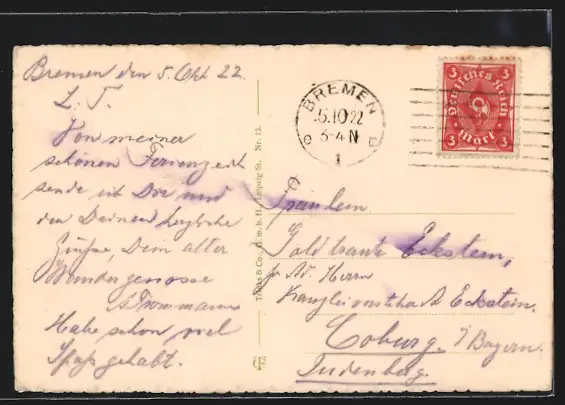 Bremen den 5. Okt 22.
L. T.
Von meiner
schönen Ferienzeit
sende ich Dir und
den Deinen herzliche
Grüße, Dein alter
Wandergenosse
Trommann
Habe schon viel
Spaß gehabt.
Trinks & Co., G. m. b. H., Leipzig St. Nr. 13.
BREMEN
5.10.22
3-4 N
1
3 3
Deutsches Reich
3 Mark 3
Fräulein
Goldtraute Eckstein,
pr. Ad. Herrn
Kanzleivorstand Eckstein
Coburg i/Bayern
Judenberg.